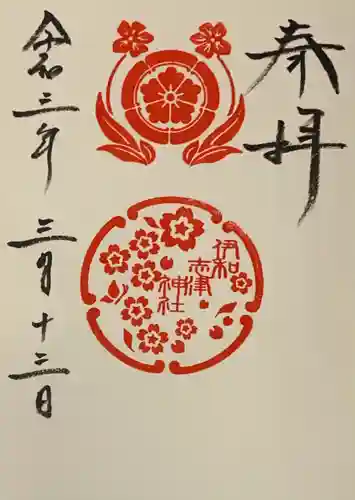 奉拝
伊和
志津
神社
令和三年
三月十三日